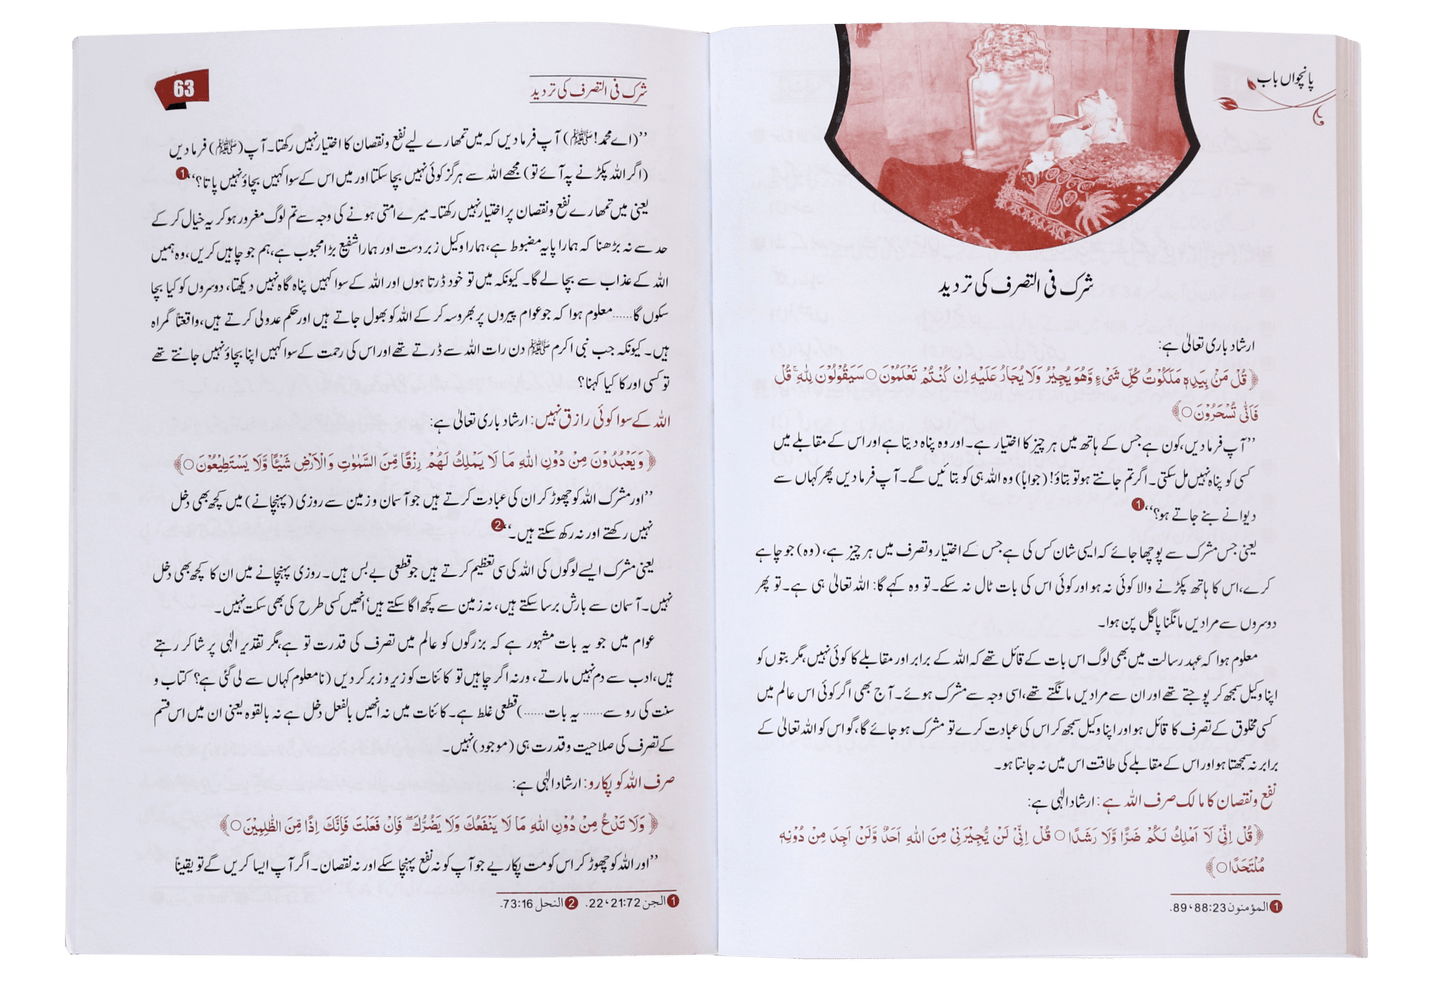 پانچواں باب
شرک فی التصرف کی تردید
ارشاد باری تعالیٰ ہے:
﴿قُلْ مَنْۢ بِيَدِهٖ مَلَكُوْتُ كُلِّ شَیْءٍ وَّهُوَ يُجِيْرُ وَلَا يُجَارُ عَلَيْهِ اِنْ كُنْتُمْ تَعْلَمُوْنَ○ سَيَقُوْلُوْنَ لِلّٰهِ ۚ قُلْ
فَاَنّٰى تُسْحَرُوْنَ○﴾
’’آپ فرما دیں، کون ہے جس کے ہاتھ میں ہر چیز کا اختیار ہے۔ اور وہ پناہ دیتا ہے اور اس کے مقابلے میں
کسی کو پناہ نہیں مل سکتی۔ اگر تم جانتے ہو تو بتاؤ! (جواباً) وہ اللہ ہی کو بتائیں گے۔ آپ فرما دیں پھر کہاں سے
دیوانے بنے جاتے ہو؟‘‘ ❶
یعنی جس مشرک سے پوچھا جائے کہ ایسی شان کس کی ہے جس کے اختیار و تصرف میں ہر چیز ہے، (وہ) جو چاہے
کرے، اس کا ہاتھ پکڑنے والا کوئی نہ ہو اور کوئی اس کی بات ٹال نہ سکے۔ تو وہ کہے گا: اللہ تعالیٰ ہی ہے۔ تو پھر
دوسروں سے مرادیں مانگنا پاگل پن ہوا۔
معلوم ہوا کہ عہد رسالت میں بھی لوگ اس بات کے قائل تھے کہ اللہ کے برابر اور مقابلے کا کوئی نہیں، مگر بتوں کو
اپنا وکیل سمجھ کر پوجتے تھے اور ان سے مرادیں مانگتے تھے، اسی وجہ سے مشرک ہوئے۔ آج بھی اگر کوئی اس عالم میں
کسی مخلوق کے تصرف کا قائل ہو اور اپنا وکیل سمجھ کر اس کی عبادت کرے تو مشرک ہو جائے گا، گو اس کو اللہ تعالیٰ کے
برابر نہ سمجھتا ہو اور اس کے مقابلے کی طاقت اس میں نہ جانتا ہو۔
نفع و نقصان کا مالک صرف اللہ ہے: ارشاد الٰہی ہے:
﴿قُلْ اِنِّیْ لَاۤ اَمْلِكُ لَكُمْ ضَرًّا وَّلَا رَشَدًا○ قُلْ اِنِّیْ لَنْ يُّجِيْرَنِیْ مِنَ اللّٰهِ اَحَدٌ وَّلَنْ اَجِدَ مِنْ دُوْنِهٖ
مُلْتَحَدًا○﴾
❶ المؤمنون 88:23، 89.
شرک فی التصرف کی تردید
63
’’(اے محمد! ﷺ) آپ فرما دیں کہ میں تمھارے لیے نفع و نقصان کا اختیار نہیں رکھتا۔ آپ (ﷺ) فرما دیں
(اگر اللہ پکڑنے پہ آئے تو) مجھے اللہ سے ہرگز کوئی نہیں بچا سکتا اور میں اس کے سوا کہیں بچاؤ نہیں پاتا؟‘‘ ❶
یعنی میں تمھارے نفع و نقصان پر اختیار نہیں رکھتا۔ میرے امتی ہونے کی وجہ سے تم لوگ مغرور ہو کر یہ خیال کر کے
حد سے نہ بڑھنا کہ ہمارا پایہ مضبوط ہے، ہمارا وکیل زبردست اور ہمارا شفیع بڑا محبوب ہے، ہم جو چاہیں کریں، وہ ہمیں
اللہ کے عذاب سے بچا لے گا۔ کیونکہ میں تو خود ڈرتا ہوں اور اللہ کے سوا کہیں پناہ گاہ نہیں دیکھتا، دوسروں کو کیا بچا
سکوں گا...... معلوم ہوا کہ جو عوام پیروں پر بھروسہ کر کے اللہ کو بھول جاتے ہیں اور حکم عدولی کرتے ہیں، واقعتاً گمراہ
ہیں۔ کیونکہ جب نبی اکرم ﷺ دن رات اللہ سے ڈرتے تھے اور اس کی رحمت کے سوا کہیں اپنا بچاؤ نہیں جانتے تھے
تو کسی اور کا کیا کہنا؟
اللہ کے سوا کوئی رازق نہیں: ارشاد باری تعالیٰ ہے:
﴿وَيَعْبُدُوْنَ مِنْ دُوْنِ اللّٰهِ مَا لَا يَمْلِكُ لَهُمْ رِزْقًا مِّنَ السَّمٰوٰتِ وَالْاَرْضِ شَيْـًٔا وَّلَا يَسْتَطِيْعُوْنَ○﴾
’’اور مشرک اللہ کو چھوڑ کر ان کی عبادت کرتے ہیں جو آسمان و زمین سے روزی (پہنچانے) میں کچھ بھی دخل
نہیں رکھتے اور نہ رکھ سکتے ہیں۔‘‘ ❷
یعنی مشرک ایسے لوگوں کی اللہ کی سی تعظیم کرتے ہیں جو قطعی بے بس ہیں۔ روزی پہنچانے میں ان کا کچھ بھی دخل
نہیں۔ آسمان سے بارش برسا سکتے ہیں، نہ زمین سے کچھ اگا سکتے ہیں‘ انھیں کسی طرح کی بھی سکت نہیں۔
عوام میں جو یہ بات مشہور ہے کہ بزرگوں کو عالم میں تصرف کی قدرت تو ہے، مگر تقدیر الٰہی پر شاکر رہتے
ہیں، ادب سے دم نہیں مارتے، ورنہ اگر چاہیں تو کائنات کو زیر و زبر کر دیں (نامعلوم کہاں سے لی گئی ہے؟ کتاب و
سنت کی رو سے...... یہ بات......) قطعی غلط ہے۔ کائنات میں نہ انھیں بالفعل دخل ہے نہ بالقوہ یعنی ان میں اس قسم
کے تصرف کی صلاحیت و قدرت ہی (موجود) نہیں۔
صرف اللہ کو پکارو: ارشاد الٰہی ہے:
﴿وَلَا تَدْعُ مِنْ دُوْنِ اللّٰهِ مَا لَا يَنْفَعُكَ وَلَا يَضُرُّكَ ۚ فَاِنْ فَعَلْتَ فَاِنَّكَ اِذًا مِّنَ الظّٰلِمِيْنَ○﴾
’’اور اللہ کو چھوڑ کر اس کو مت پکاریے جو آپ کو نہ نفع پہنچا سکے اور نہ نقصان۔ اگر آپ ایسا کریں گے تو یقیناً
❶ الجن 21:72، 22. ❷ النحل 73:16.